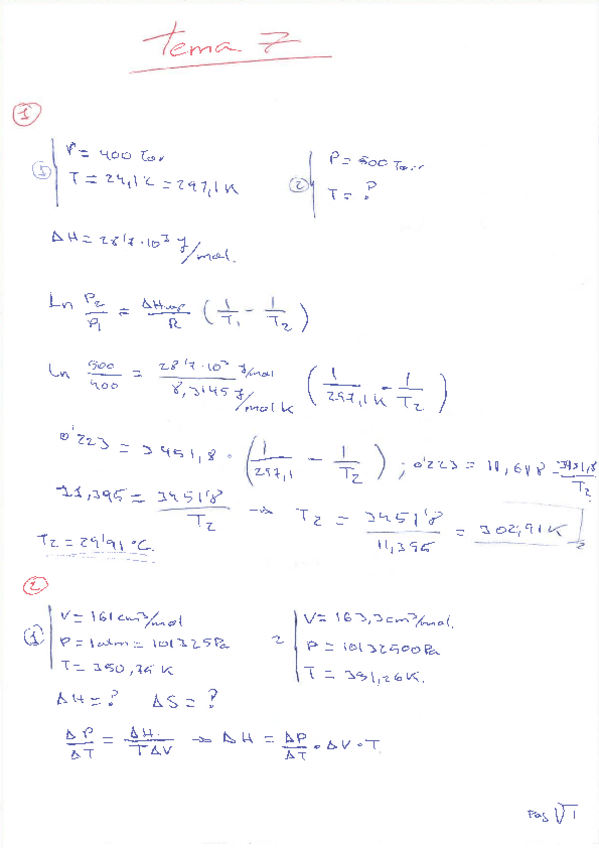 Tema 7
①
① P = 400 Torr
T = 24,1ºC = 297,1K
② P = 500 Torr
T = ?
ΔH = 28'7·10³ J/mol.
Ln P2/P1 = ΔHvap/R (1/T1 - 1/T2)
Ln 500/400 = 28'7·10³ J/mol / 8,3145 J/mol K (1/297,1K - 1/T2)
0'223 = 3451,8 · (1/297,1 - 1/T2) ; 0'223 = 11,618 - 3451,8/T2
11,395 = 3451'8/T2 → T2 = 3451'8/11,395 = 302,91K
T2 = 29'91 ºC.
②
① V = 161 cm³/mol
P = 1atm = 101325Pa
T = 350,75 K
2 V = 163,3 cm³/mol.
P = 10132500Pa
T = 351,26K.
ΔH = ? ΔS = ?
ΔP/ΔT = ΔH/TΔV → ΔH = ΔP/ΔT · ΔV · T
Pag 1